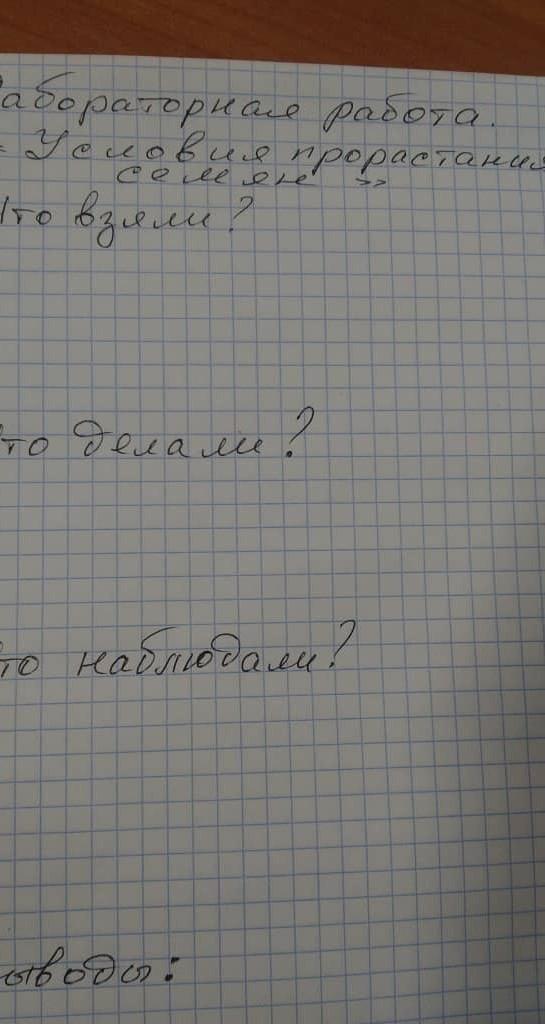 абораторная работа.
« Условия прорастания
семян »
Что взяли?
то делали?
то наблюдали?
ыводы: